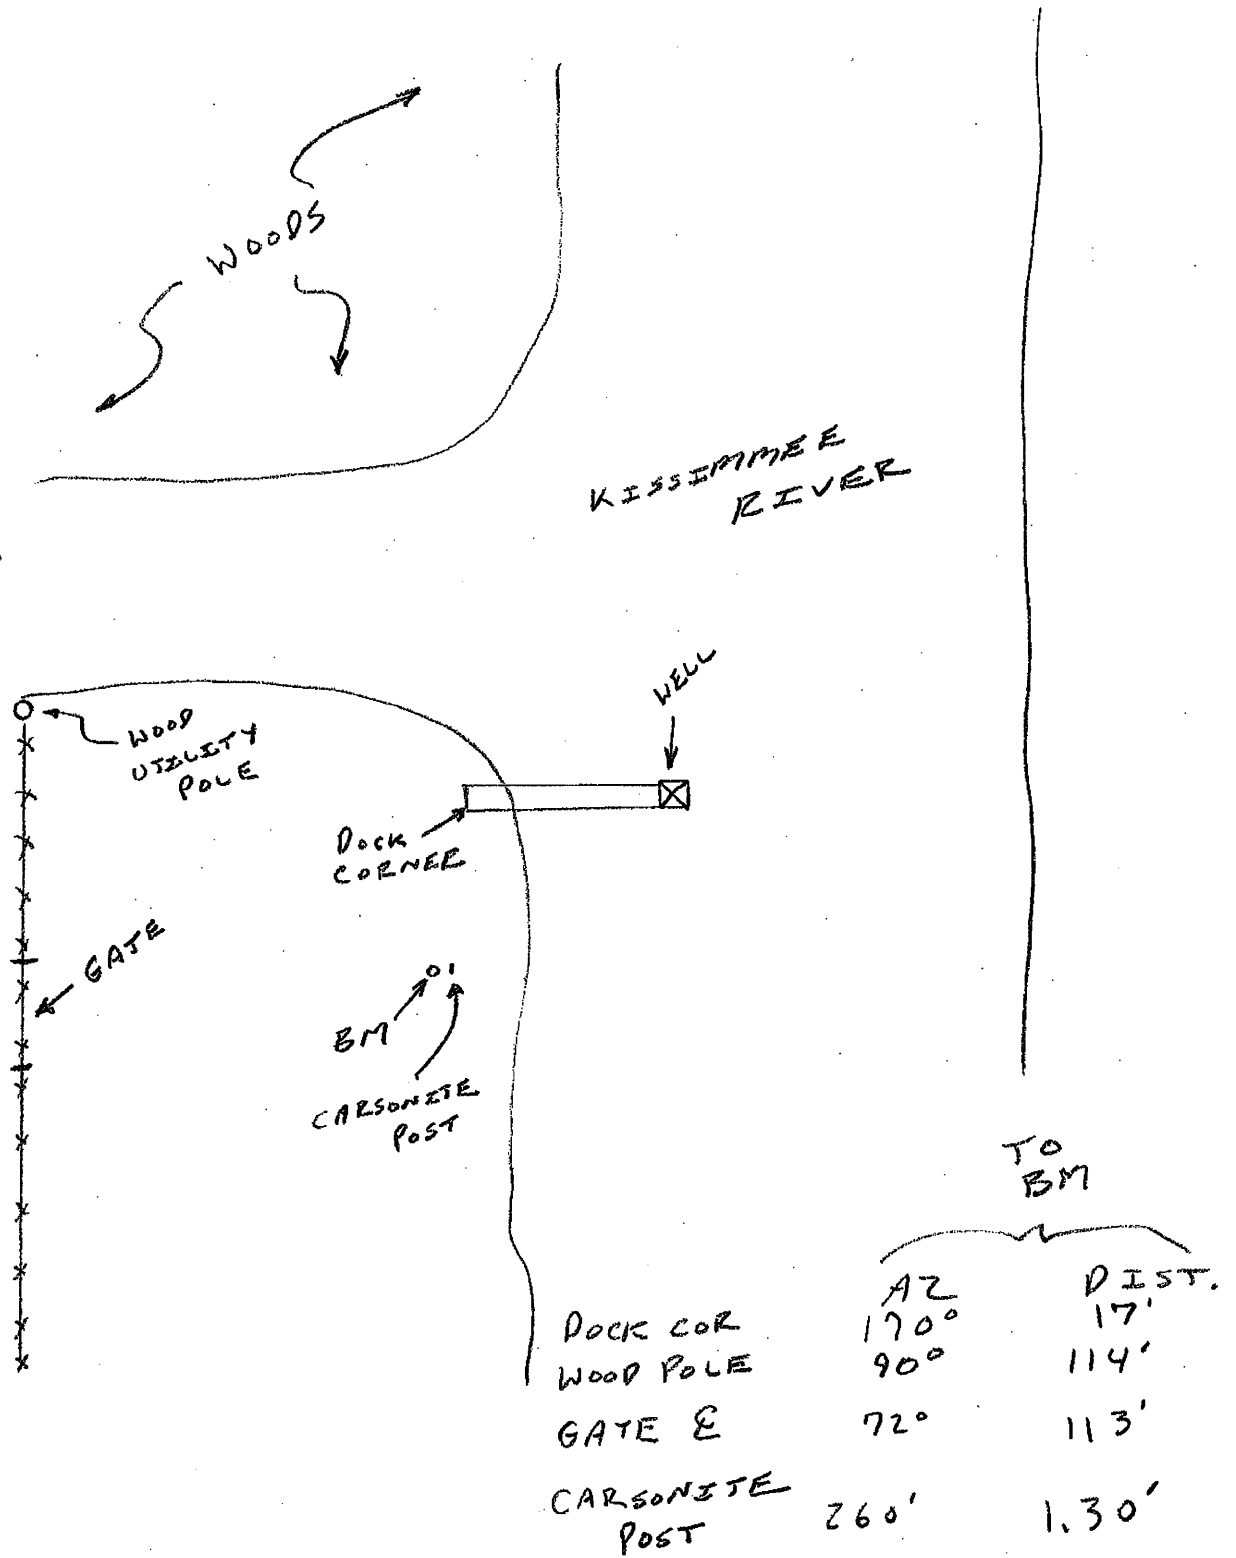 WOODS
KISSIMMEE
RIVER
WELL
WOOD
UTILITY
POLE
DOCK
CORNER
GATE
BM
CARSONITE
POST
TO
BM
AZ DIST.
DOCK COR 170° 17'
WOOD POLE 90° 114'
GATE ℄ 72° 113'
CARSONITE
POST 260' 1.30'